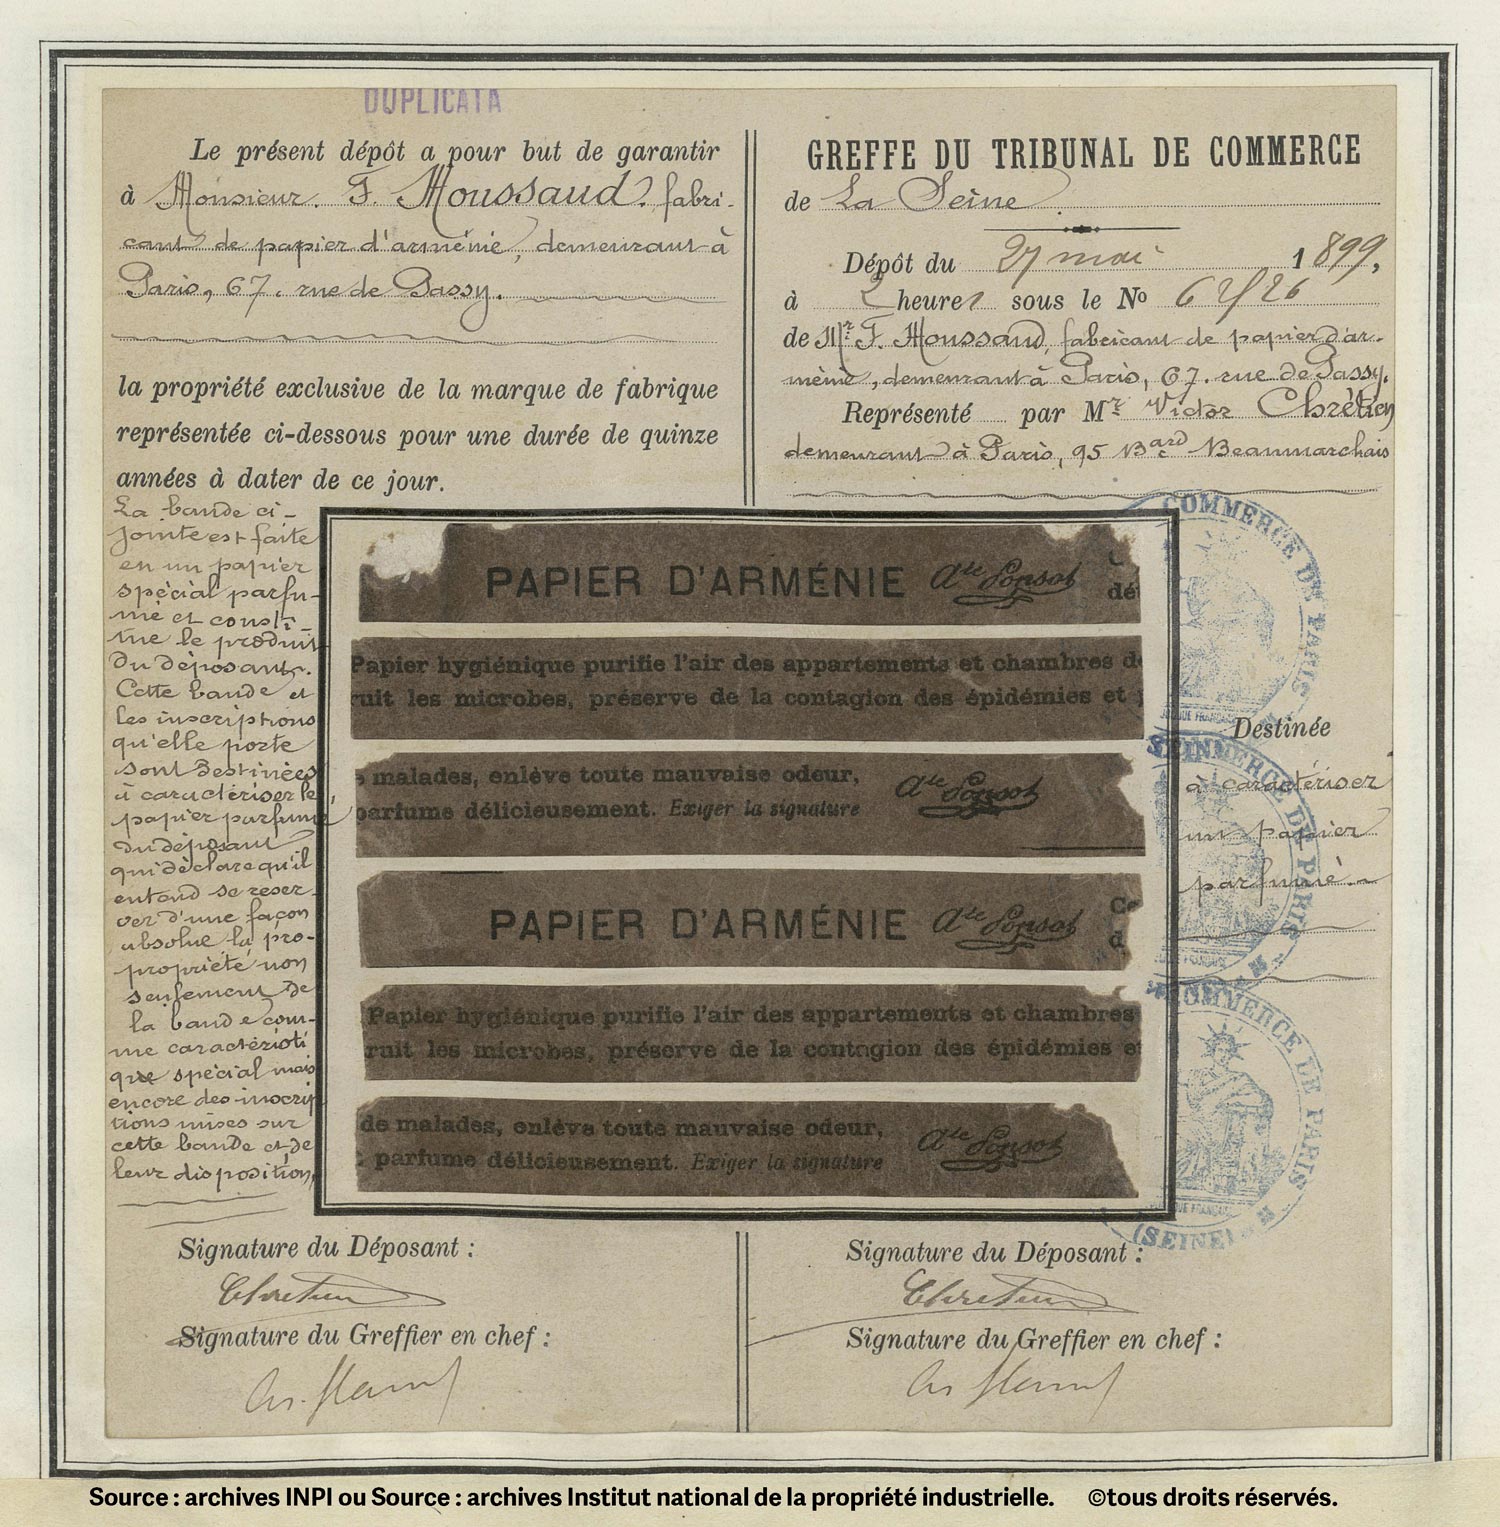 DUPLICATA
Le présent dépôt a pour but de garantir
à Monsieur. F. Moussaud. fabri-
cant de papier d'arménie, demeurant à
Paris, 67. rue de Passy.
la propriété exclusive de la marque de fabrique
représentée ci-dessous pour une durée de quinze
années à dater de ce jour.
La bande ci-
jointe est faite
en un papier
spécial parfu-
mé et consti-
tue le produit
du déposant.
Cette bande et
les inscriptions
qu'elle porte
sont destinées
à caractériser le
papier parfumé
du déposant
qui déclare qu'il
entend se reser-
ver d'une façon
absolue la pro-
propriété non
seulement de
la bande com-
me caractéristi
que spécial mais
encore des inscrip
tions mises sur
cette bande et de
leur disposition,
GREFFE DU TRIBUNAL DE COMMERCE
de La Seine.
Dépôt du 27 mai 1899,
à 2 heures sous le No
de Mr. F. Moussaud, fabricant de papier d'ar-
ménie, demeurant à Paris, 67. rue de Passy.
Représenté par Mr. Victor Chrétien
demeurant à Paris, 95 Bard Beaumarchais
PAPIER D'ARMÉNIE Ate Ponsot
dé
Papier hygiénique purifie l'air des appartements et chambres d
ruit les microbes, préserve de la contagion des épidémies et
s malades, enlève toute mauvaise odeur,
parfume délicieusement. Exiger la signature Ate Ponsot
PAPIER D'ARMÉNIE Ate Ponsot
Ce
d
Papier hygiénique purifie l'air des appartements et chambres
ruit les microbes, préserve de la contagion des épidémies e
de malades, enlève toute mauvaise odeur,
parfume délicieusement. Exiger la signature Ate Ponsot
COMMERCE DE PARIS
Destinée
à caractériser
un papier
parfumé.
COMMERCE DE PARIS
COMMERCE DE PARIS
(SEINE)
Signature du Déposant :
Chretien
Signature du Greffier en chef :
Signature du Déposant :
Chretien
Signature du Greffier en chef :
Source : archives INPI ou Source : archives Institut national de la propriété industrielle. ©tous droits réservés.